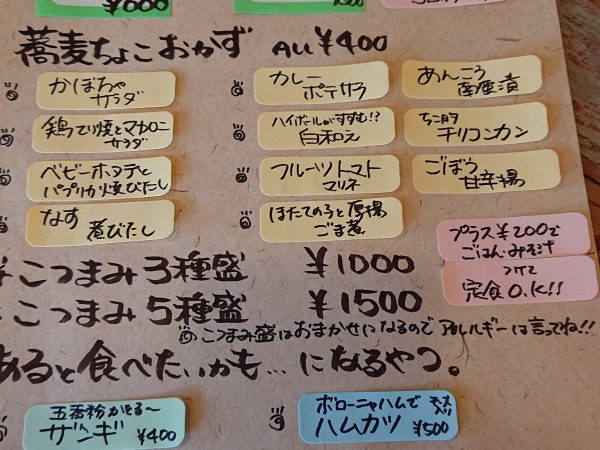 ¥600
蕎麦ちょこおかず ALL ¥400
かぼちゃ
サラダ
カレー
ポテサラ
あんこう
南蛮漬
鶏てり焼とマカロニ
サラダ
ハイボールがすすむ!?
白和え
チリコンカン
ベビーホタテと
パプリカ焼びたし
フルーツトマト
マリネ
ごぼう
甘辛揚
なす
煮びたし
ほたての子と厚揚
ごま煮
プラス¥200で
ごはん・みそ汁
つけて
定食O.K!!
こつまみ3種盛 ¥1000
こつまみ5種盛 ¥1500
こつまみ盛はおまかせになるのでアレルギーは言ってね!!
あると食べたいかも…になるやつ。
五香粉かおる〜
ザンギ ¥400
ボローニャハムで
ハムカツ ¥500